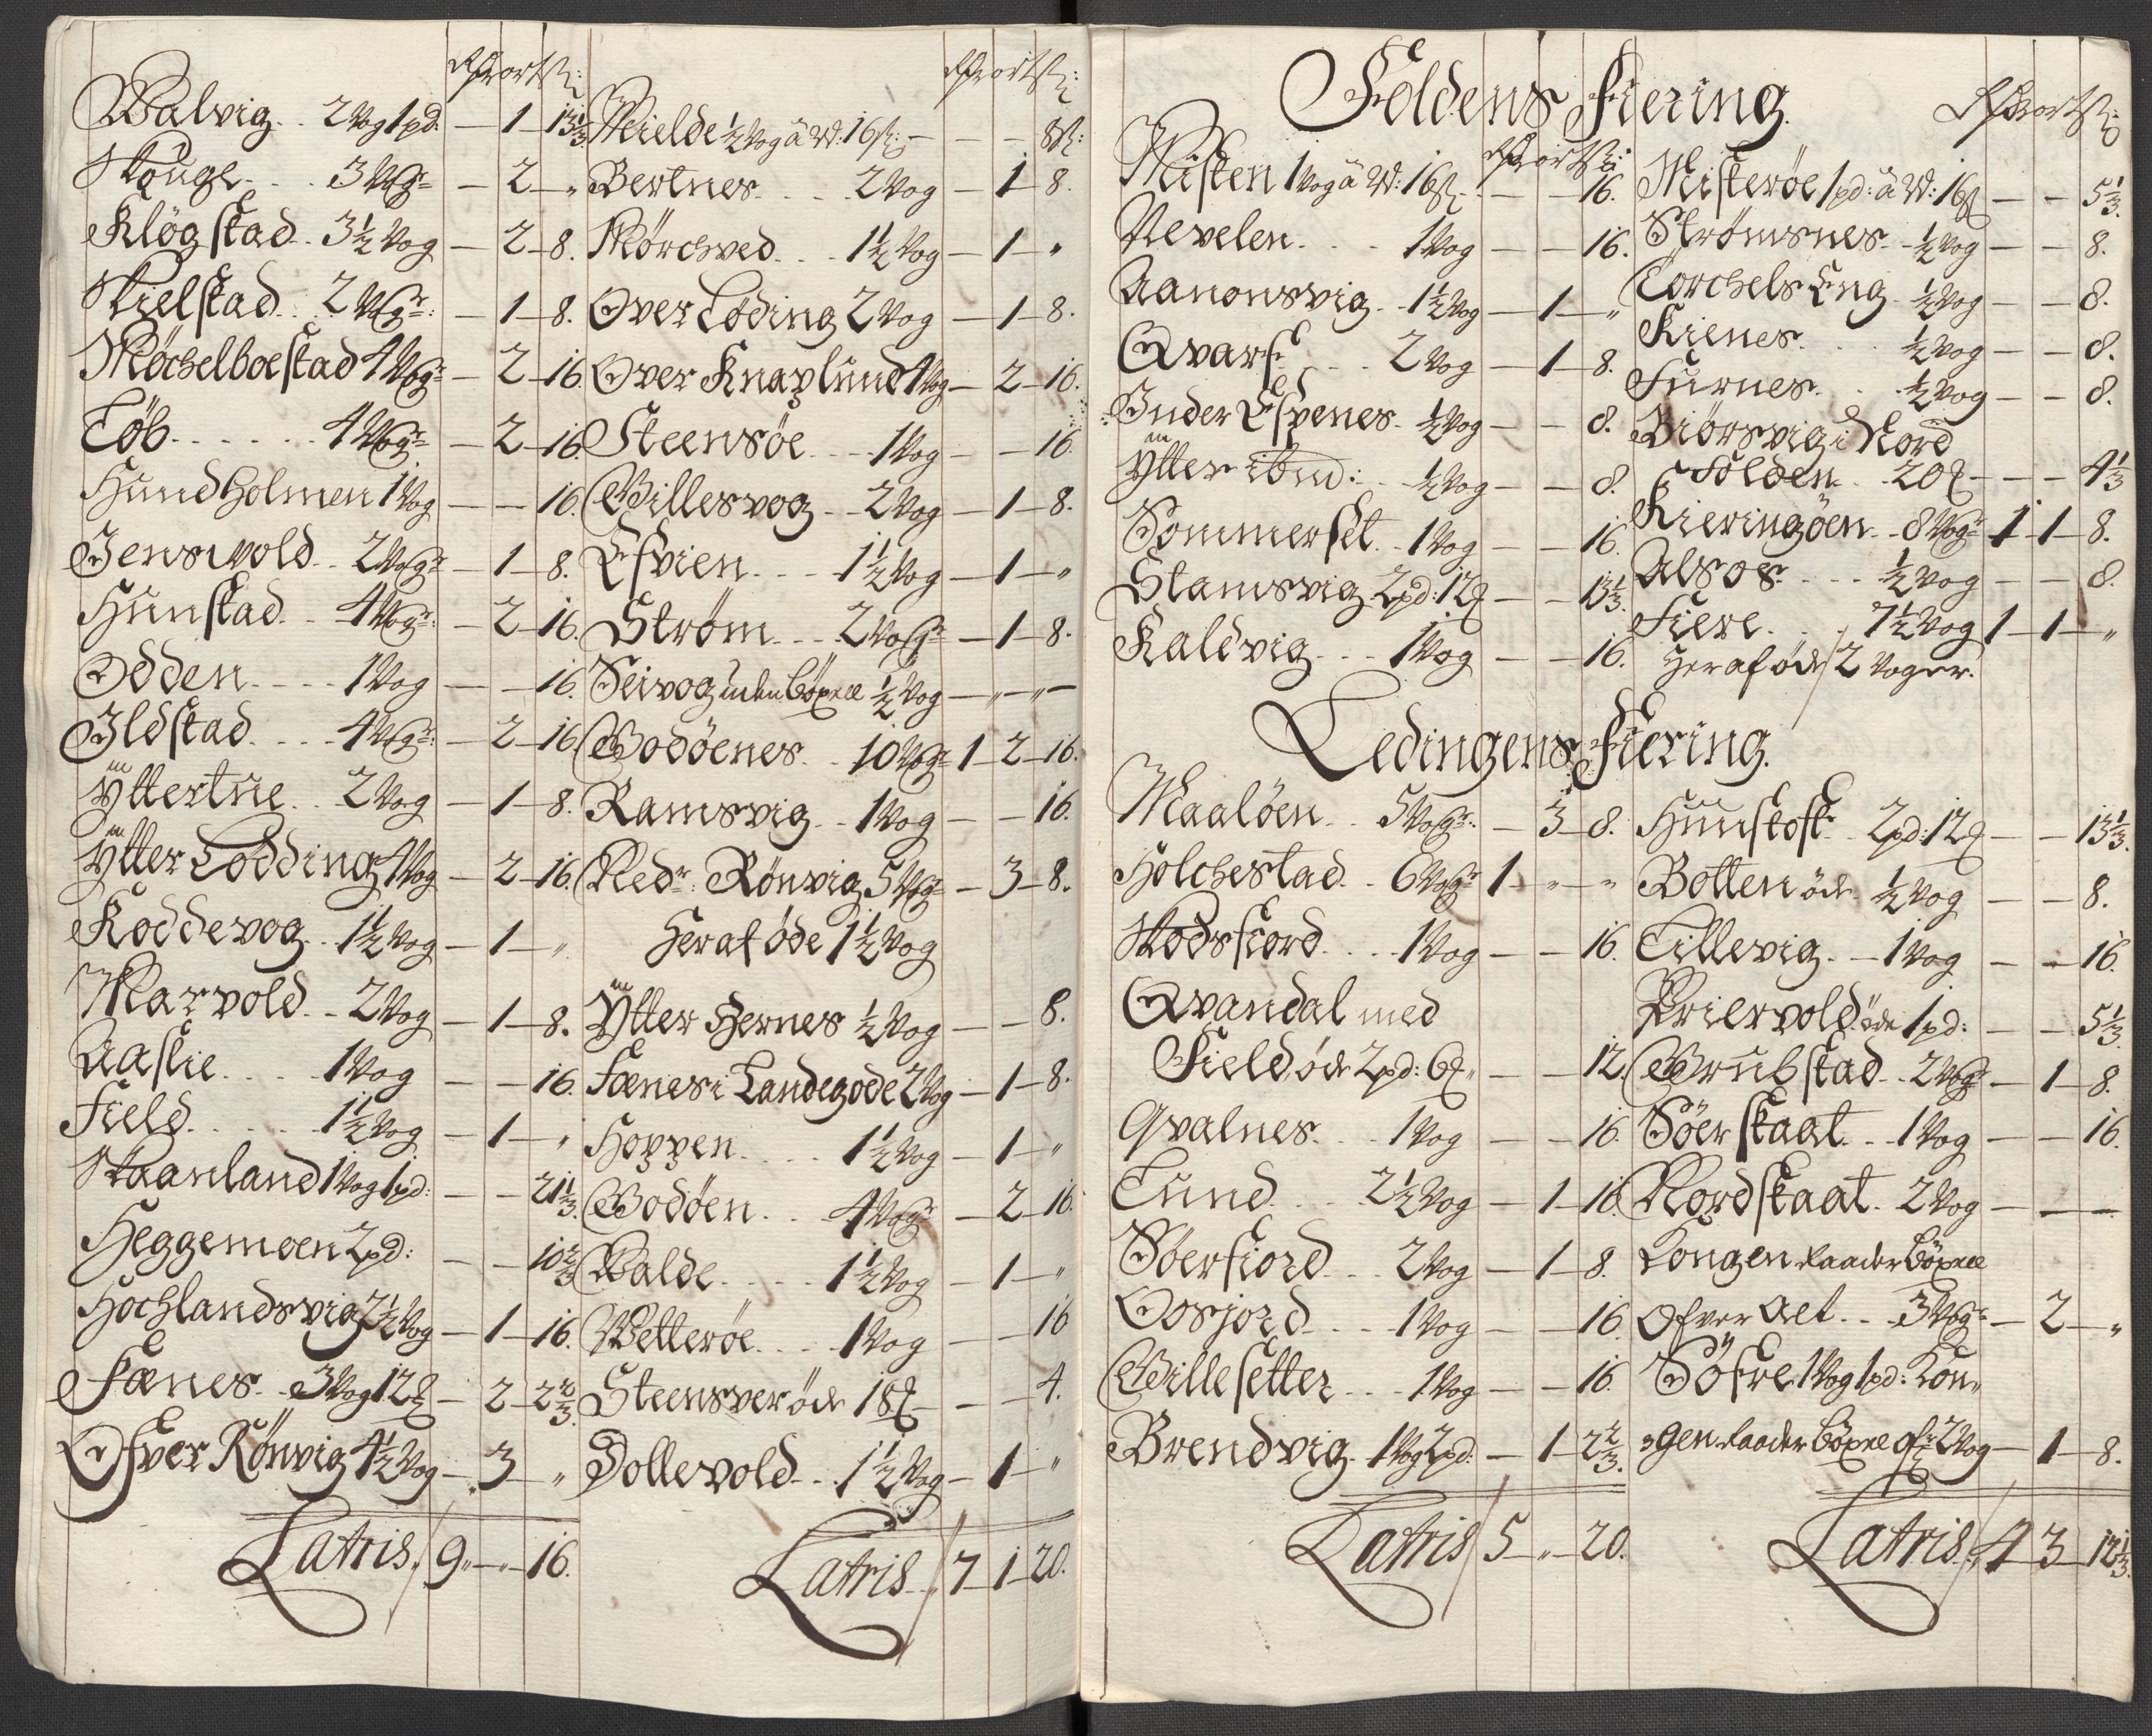 Rdr ort ß:
Walvig .. 2 Vog 1 pd: — 1 — 13 1/3
Skouge ... 3 Vogr — 2 — „
Klögstad .. 3 1/2 Vog — 2 — 8.
Skielstad .. 2 Vogr: — 1 — 8.
Möchelboestad 4 Vogr — 2 — 16.
Töb ...... 4 Vogr — 2 — 16.
Hundholmen 1 Vog — — 16.
Jensvold .. 2 Vogr — 1 — 8.
Hunstad .. 4 Vogr: — 2 — 16.
Odden .... 1 Vog — — 16.
Ildstad .... 4 Vogr: — 2 — 16.
Yttertue .. 2 Vog — 1 — 8.
Ytter Lødding 4 Vog — 2 — 16.
Koddevog .. 1 1/2 Vog — 1 — „
Marvold .. 2 Vog — 1 — 8.
Aaslie .... 1 Vog — — 16.
Field ..... 1 1/2 Vog — 1 — „
Skaanland 1 Vog 1 pd: — — 21 1/3.
Heggemoen 2 pd: — — 10 2/3
Hochlandsvig 2 1/2 Vog — 1 — 16.
Fænes .. 3 Vog 12 ℔ — 2 — 2 2/3.
Ofver Rönvig 4 1/2 Vog — 3 — „
Latris. 9 „ — „ — 16.
Rdr ort ß:
Mielde 1/2 Vog à W: 16 ß: — — 8 ß:
Bertnes .... 2 Vog — 1 — 8.
Mørchved ... 1 1/2 Vog — 1 — „
Over Løding 2 Vog — 1 — 8.
Over Knaplund 4 Vog — 2 — 16.
Steensøe ... 1 Vog — — 16.
Gillesvog .. 2 Vog — 1 — 8.
Esvien .... 1 1/2 Vog — 1 — „
Strøm ... 2 Vogr — 1 — 8.
Seivog uden böxel 1/2 Vog — „ — „ —
Godøenes .. 10 Vogr 1 — 2 — 16.
Ramsvig .. 1 Vog — — 16.
Nedr: Rönvig 5 Vogr — 3 — 8.
Heraf öde 1 1/2 Vog
Ytter Hernes 1/2 Vog — — 8.
Fænes i Landegode 2 Vog — 1 — 8.
Hoppen .... 1 1/2 Vog — 1 — „
Godöen ... 4 Vogr — 2 — 16.
Valde .... 1 1/2 Vog — 1 — „
Wetteröe .... 1 Vog — — 16
Steensver öde 18 ℔ — — 4.
Dollevold .. 1 1/2 Vog — 1 — „
Latris. 7 — 1 — 20.
Foldens Fiering.
Rdr ort ß:
Misten 1 Vog à W: 16 ß: — — 16.
Nevelen .... 1 Vog — — 16.
Aanonsvig .. 1 1/2 Vog — 1 — „
Qvarf .... 2 Vog — 1 — 8.
Inder Espenes 1/2 Vog — — 8.
Ytter ibnd: .. 1/2 Vog — — 8.
Sommerset .. 1 Vog — — 16.
Stamsvig 2 pd: 12 ℔ — — 13 1/3.
Kaldvig ... 1 Vog — — 16.
Rdr ort ß:
Misterøe 1 pd: à W: 16 ß — — 5 1/3.
Strømsnes .. 1/2 Vog — — 8.
Torchels Eng 1/2 Vog — — 8.
Kienes .... 1/2 Vog — — 8.
Furnes ... 1/2 Vog — — 8.
Biörsvig i Nord
Folden .. 20 ℔ — — 4 1/3
Kieringöen .. 8 Vogr 1 — 1 — 8.
Alsos .... 1/2 Vog — — 8.
Fiere ... 7 1/2 Vog 1 — 1 — „
Heraf öde 2 Voger.
Ledingens Fiering.
Maalöen .. 5 Vogr: — 3 — 8.
Holchestad .. 6 Vogr 1 — „ — „
Skodsfiord .... 1 Vog — — 16.
Qvandal med
Field öde 2 pd: 6 ℔ — — 12.
Qvalnes ... 1 Vog — — 16.
Tund ... 2 1/2 Vog — 1 — 16.
Söerfiord ... 2 Vog — 1 — 8.
Oosjord .... 1 Vog — — 16.
Gillesetter ... 1 Vog — — 16.
Brendvig . 1 Vog 2 pd: — 1 — 2 2/3.
Latris 5 — „ — 20.
Hunstoft .. 2 pd: 12 ℔ — — 13 1/3.
Botten öde 1/2 Vog — — 8.
Tillevig .. 1 Vog — — 16.
Kriervold öde 1 pd: — — 5 1/3.
Grubstad .. 2 Vogr — 1 — 8.
Söer Skaat .. 1 Vog — — 16.
Nord Skaat . 2 Vog — — —
Kongen raader böxel
Ofver Aet ... 3 Vogr — 2 — „
Söfre 1 Vog 1 pd: Kon„
„gen raader böxel 2 Vog — 1 — 8.
Latris. 4 — 3 — 12 1/3.